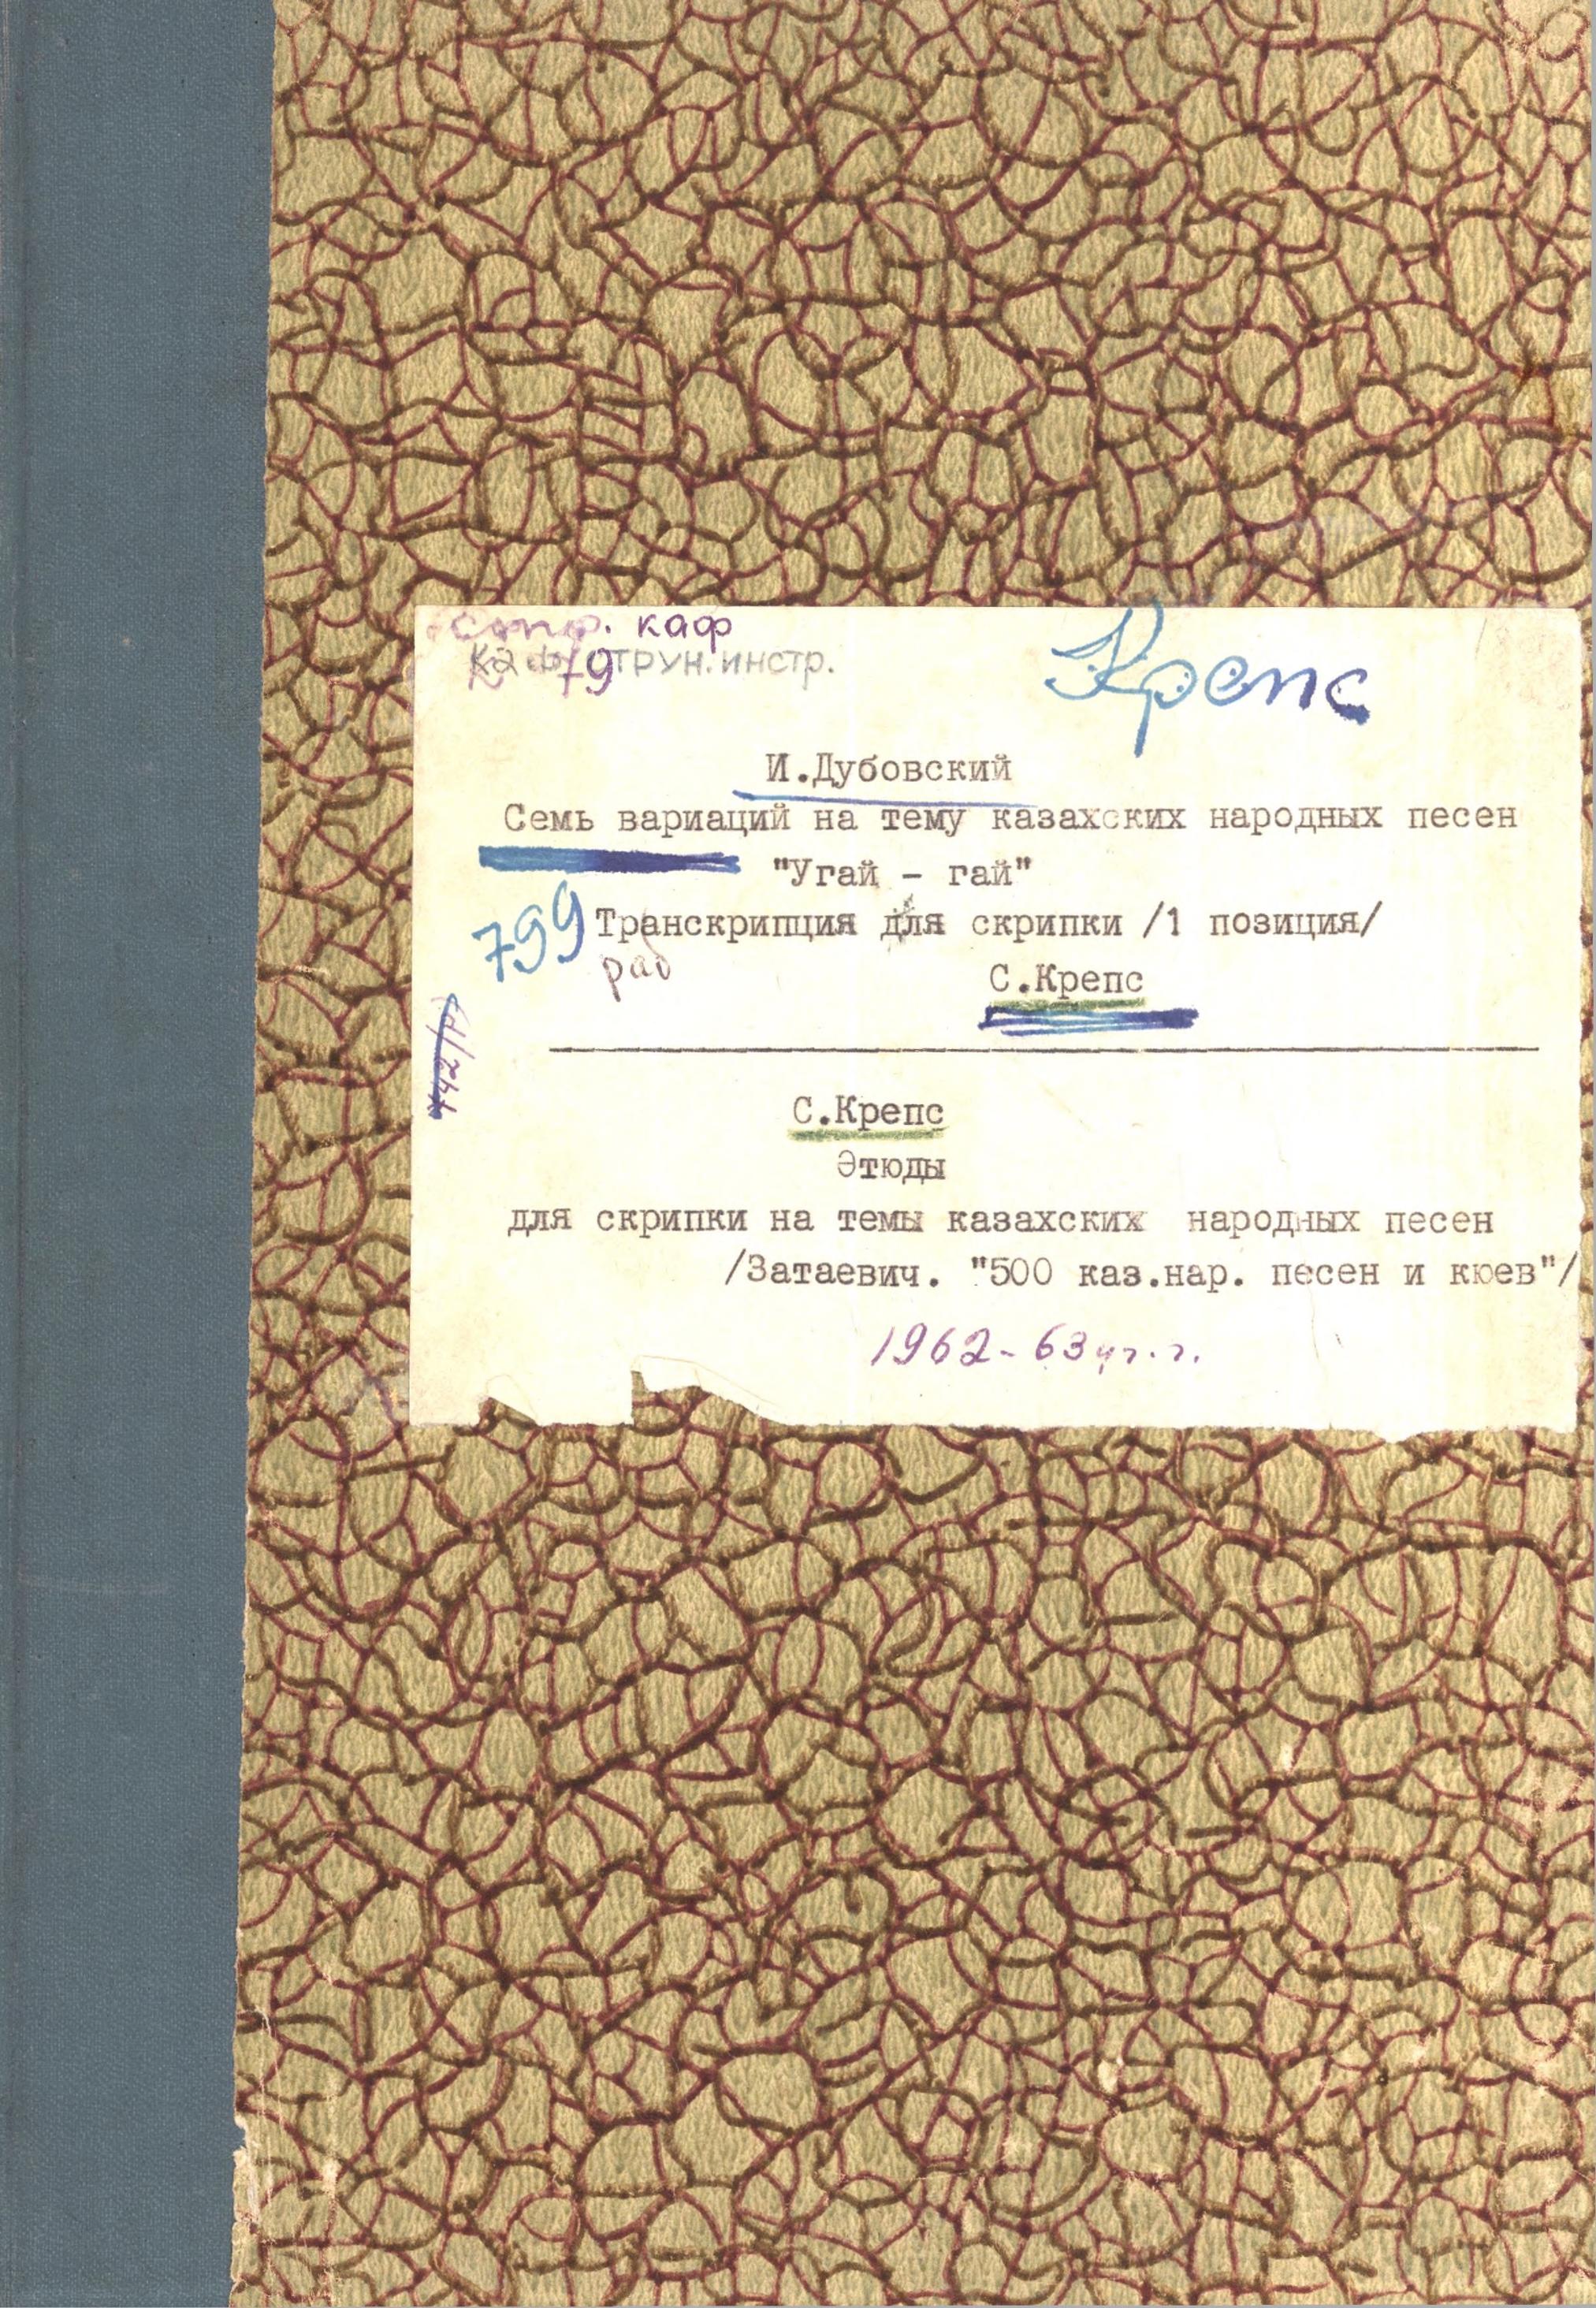 струн. каф
Каф. струн.инстр.
К 79
Крепс
И.Дубовский
Семь вариаций на тему казахских народных песен
"Угай - гай"
799
Транскрипция для скрипки /1 позиция/
раб
С.Крепс
С.Крепс
Этюды
для скрипки на темы казахских народных песен
/Затаевич. "500 каз.нар. песен и кюев"/
1962-63 уч.г.